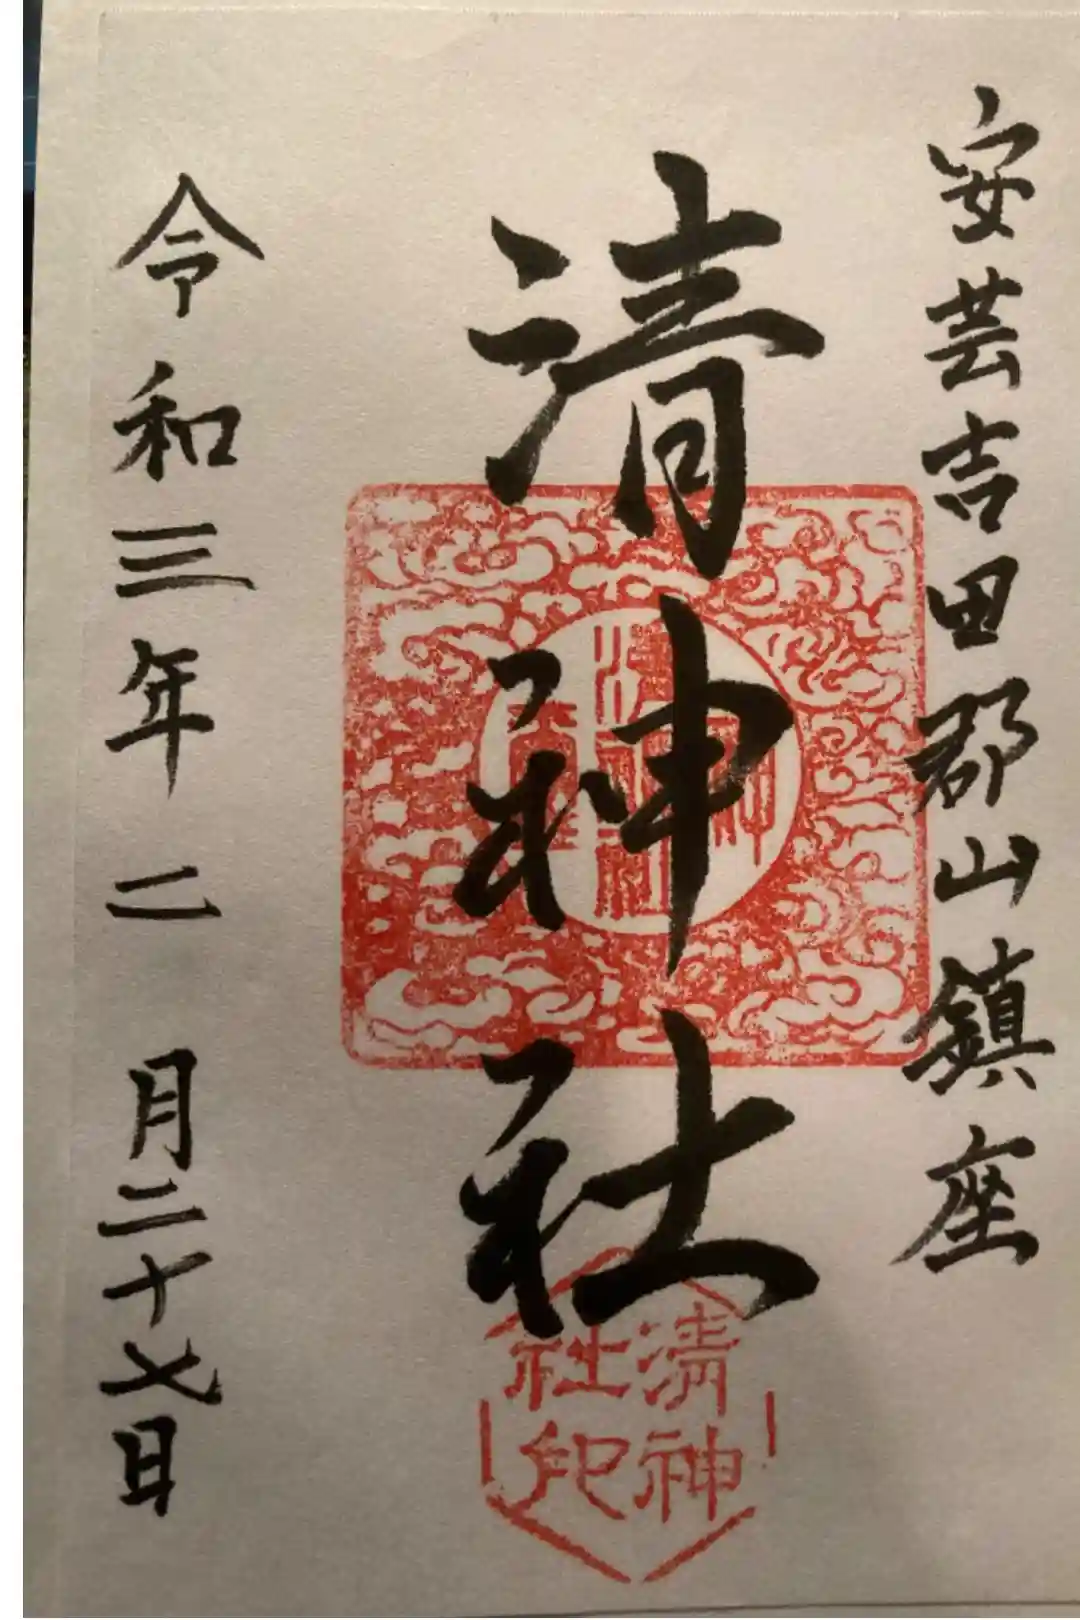 安芸吉田郡山鎮座
清神社
令和三年二月二十七日
清神
社印